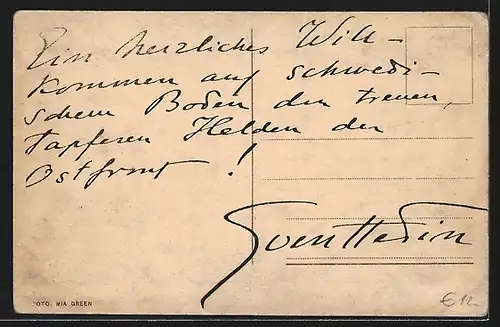 Ein herzliches Will-
kommen auf schwedi-
schem Boden den treuen,
tapferen Helden der
Ostfront!
Sven Hedin
OTO. MIA GREEN
€12.